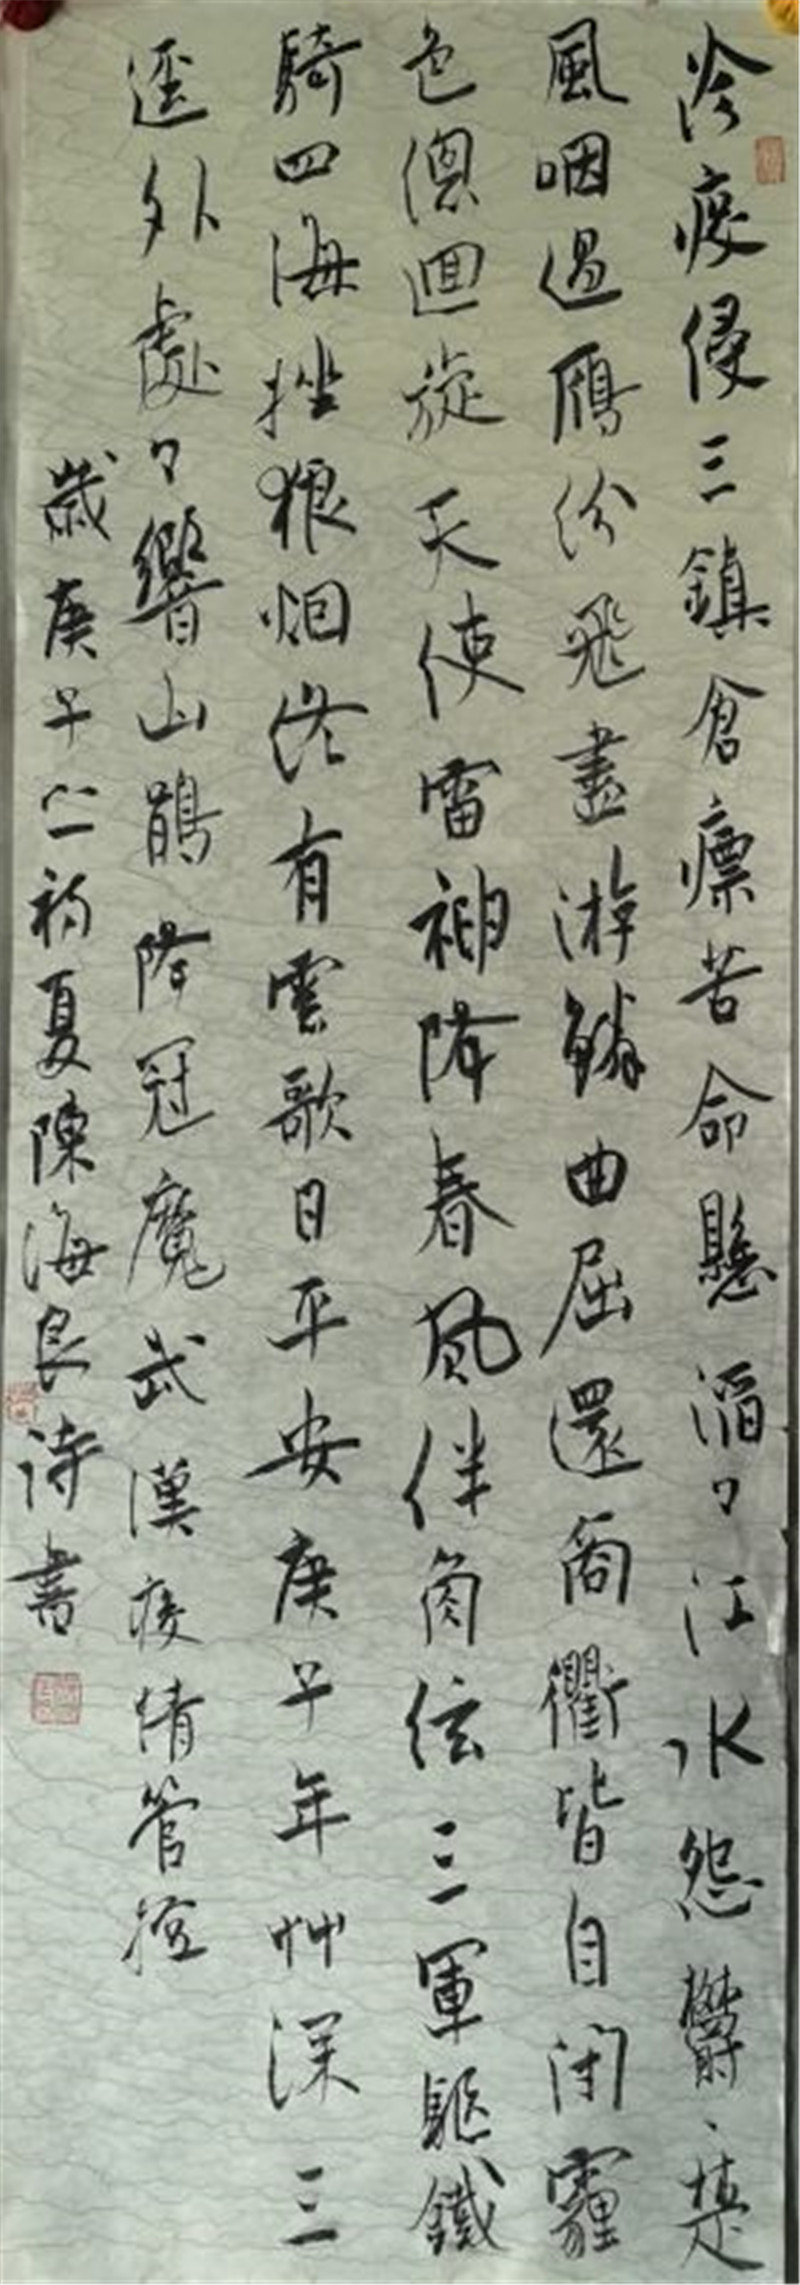 冷疫侵三鎮倉瘭苦命懸滔々江水怨鬱々楚
風咽過雁份飛盡游鱗曲屈還商衢皆自閉霾
色偬迴旋天使雷神降春風伴角弦三軍驅鐵
騎四海挫狼烟終有雲歌日平安庚子年艸深三
逕外處々響山鵲降冠魔武漢疫情管控
歲庚子仁初夏陳海良詩書